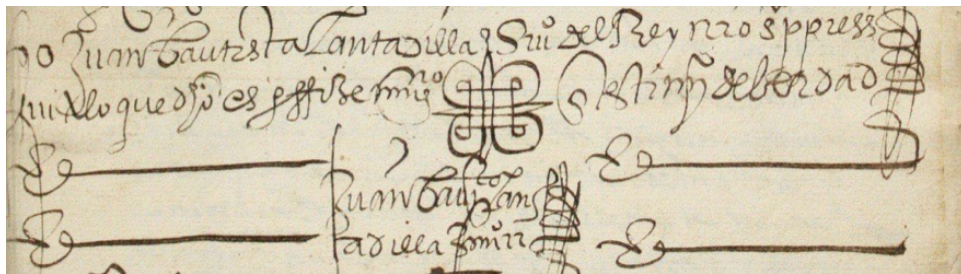 yo Juan bautista Lantadilla Scriuº del Rey nrō sr presst
fui A lo que dhō es E fize mi sigº no en testimº de berdad
Juan bautᵗᵃ Lan
tadilla